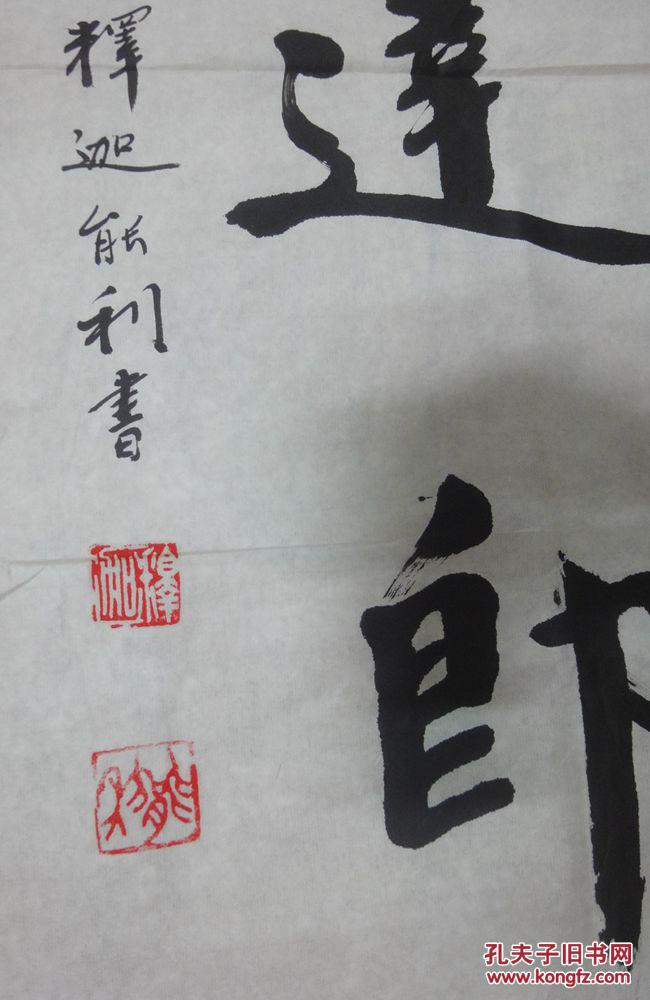 達
郎
釋迦能利書
釋迦
能利
孔夫子旧书网
www.kongfz.com